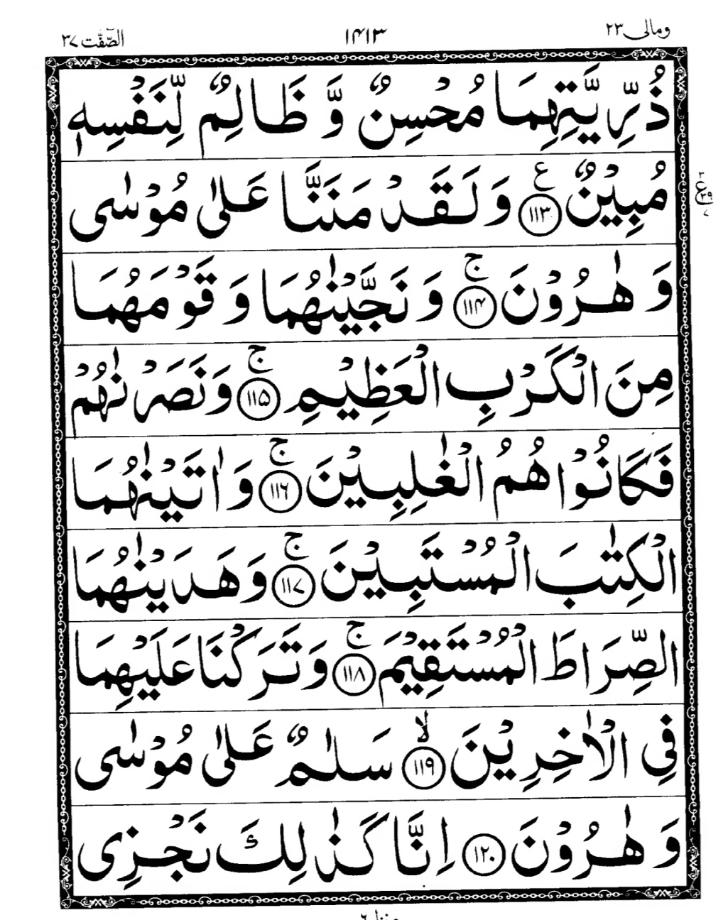 ومالی ٢٣ ١٤١٣ الصّٰٓفّٰت ٣٧
ذُرِّيَّتِهِمَا مُحْسِنٌ وَّ ظَالِمٌ لِّنَفْسِهٖ
مُبِيْنٌ ﴿١١٣﴾ ع وَ لَقَدْ مَنَنَّا عَلٰى مُوْسٰى
وَ هٰرُوْنَ ﴿١١٤﴾ ج وَ نَجَّيْنٰهُمَا وَ قَوْمَهُمَا
مِنَ الْكَرْبِ الْعَظِيْمِ ﴿١١٥﴾ ج وَ نَصَرْنٰهُمْ
فَكَانُوْا هُمُ الْغٰلِبِيْنَ ﴿١١٦﴾ ج وَ اٰتَيْنٰهُمَا
الْكِتٰبَ الْمُسْتَبِيْنَ ﴿١١٧﴾ ج وَ هَدَيْنٰهُمَا
الصِّرَاطَ الْمُسْتَقِيْمَ ﴿١١٨﴾ ج وَ تَرَكْنَا عَلَيْهِمَا
فِي الْاٰخِرِيْنَ ﴿١١٩﴾ لا سَلٰمٌ عَلٰى مُوْسٰى
وَ هٰرُوْنَ ﴿١٢٠﴾ اِنَّا كَذٰلِكَ نَجْزِى